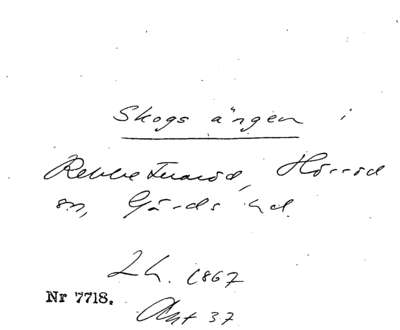 Skogs ängen i
Rebbetuaröd, Hörröd
sn, Gärds hd.
Lh. 1867
Nr 7718.
Akt 37